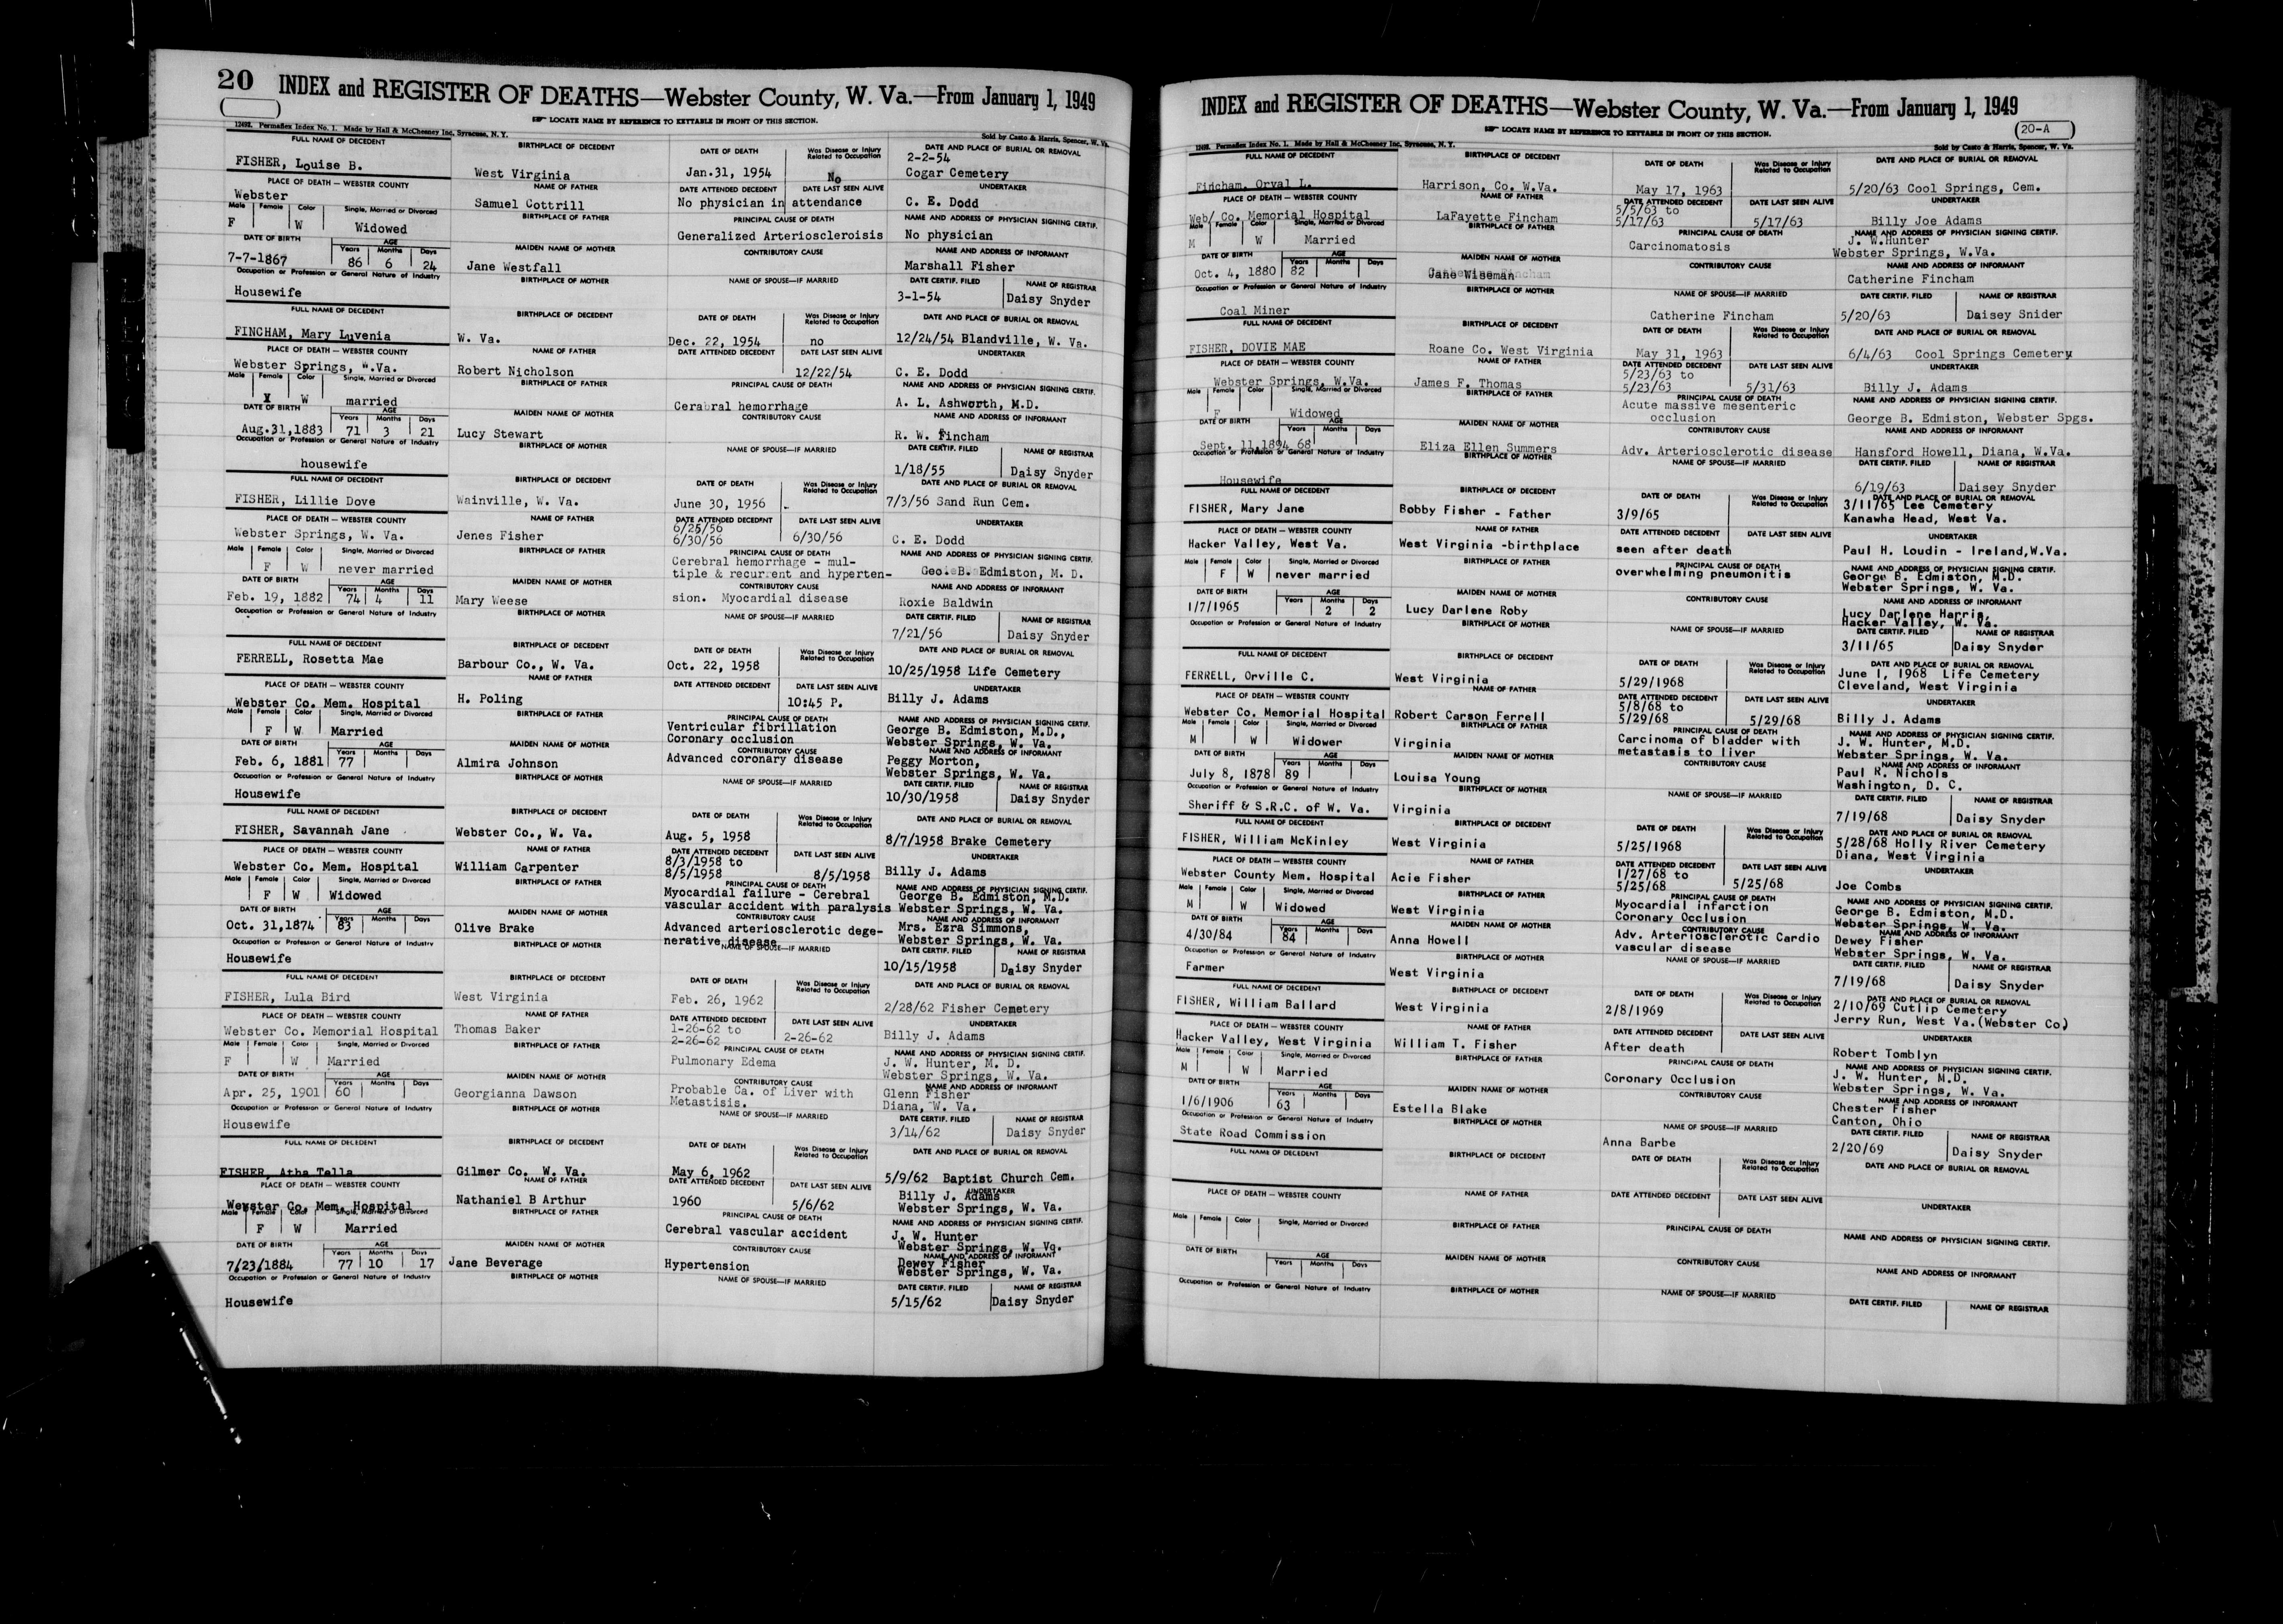 20 INDEX and REGISTER OF DEATHS—Webster County, W. Va.—From January 1, 1949
☞ LOCATE NAME BY REFERENCE TO KEYTABLE IN FRONT OF THIS SECTION.
12492. Permaflex Index No. 1. Made by Hall & McChesney Inc. Syracuse, N. Y. Sold by Casto & Harris, Spencer, W. Va.
FULL NAME OF DECEDENT BIRTHPLACE OF DECEDENT DATE OF DEATH Was Disease or Injury Related to Occupation DATE AND PLACE OF BURIAL OR REMOVAL
FISHER, Louise B. West Virginia Jan.31, 1954 No 2-2-54 Cogar Cemetery
PLACE OF DEATH — WEBSTER COUNTY NAME OF FATHER DATE ATTENDED DECEDENT DATE LAST SEEN ALIVE UNDERTAKER
Webster Samuel Cottrill No physician in attendance C. E. Dodd
Male Female Color Single, Married or Divorced BIRTHPLACE OF FATHER PRINCIPAL CAUSE OF DEATH NAME AND ADDRESS OF PHYSICIAN SIGNING CERTIF.
F W Widowed Generalized Arteriosclerosis No physician
DATE OF BIRTH AGE Years Months Days MAIDEN NAME OF MOTHER CONTRIBUTORY CAUSE NAME AND ADDRESS OF INFORMANT
7-7-1867 86 6 24 Jane Westfall Marshall Fisher
Occupation or Profession or General Nature of Industry BIRTHPLACE OF MOTHER NAME OF SPOUSE—IF MARRIED DATE CERTIF. FILED NAME OF REGISTRAR
Housewife 3-1-54 Daisy Snyder
FULL NAME OF DECEDENT BIRTHPLACE OF DECEDENT DATE OF DEATH Was Disease or Injury Related to Occupation DATE AND PLACE OF BURIAL OR REMOVAL
FINCHAM, Mary Luvenia W. Va. Dec. 22, 1954 no 12/24/54 Blandville, W. Va.
PLACE OF DEATH — WEBSTER COUNTY NAME OF FATHER DATE ATTENDED DECEDENT DATE LAST SEEN ALIVE UNDERTAKER
Webster Springs, W.Va. Robert Nicholson 12/22/54 C. E. Dodd
Male Female Color Single, Married or Divorced BIRTHPLACE OF FATHER PRINCIPAL CAUSE OF DEATH NAME AND ADDRESS OF PHYSICIAN SIGNING CERTIF.
X W married Cerabral hemorrhage A. L. Ashworth, M.D.
DATE OF BIRTH AGE Years Months Days MAIDEN NAME OF MOTHER CONTRIBUTORY CAUSE NAME AND ADDRESS OF INFORMANT
Aug.31,1883 71 3 21 Lucy Stewart R. W. Fincham
Occupation or Profession or General Nature of Industry BIRTHPLACE OF MOTHER NAME OF SPOUSE—IF MARRIED DATE CERTIF. FILED NAME OF REGISTRAR
housewife 1/18/55 Daisy Snyder
FULL NAME OF DECEDENT BIRTHPLACE OF DECEDENT DATE OF DEATH Was Disease or Injury Related to Occupation DATE AND PLACE OF BURIAL OR REMOVAL
FISHER, Lillie Dove Wainville, W. Va. June 30, 1956 - 7/3/56 Sand Run Cem.
PLACE OF DEATH — WEBSTER COUNTY NAME OF FATHER DATE ATTENDED DECEDENT DATE LAST SEEN ALIVE UNDERTAKER
Webster Springs, W. Va. Jenes Fisher 6/25/56 6/30/56 6/30/56 C. E. Dodd
Male Female Color Single, Married or Divorced BIRTHPLACE OF FATHER PRINCIPAL CAUSE OF DEATH NAME AND ADDRESS OF PHYSICIAN SIGNING CERTIF.
F W never married Cerebral hemorrhage - mul- tiple & recurrent and hyperten- Geo. B. Edmiston, M. D.
DATE OF BIRTH AGE Years Months Days MAIDEN NAME OF MOTHER CONTRIBUTORY CAUSE NAME AND ADDRESS OF INFORMANT
Feb. 19, 1882 74 4 11 Mary Weese sion. Myocardial disease Roxie Baldwin
Occupation or Profession or General Nature of Industry BIRTHPLACE OF MOTHER NAME OF SPOUSE—IF MARRIED DATE CERTIF. FILED NAME OF REGISTRAR
7/21/56 Daisy Snyder
FULL NAME OF DECEDENT BIRTHPLACE OF DECEDENT DATE OF DEATH Was Disease or Injury Related to Occupation DATE AND PLACE OF BURIAL OR REMOVAL
FERRELL, Rosetta Mae Barbour Co., W. Va. Oct. 22, 1958 10/25/1958 Life Cemetery
PLACE OF DEATH — WEBSTER COUNTY NAME OF FATHER DATE ATTENDED DECEDENT DATE LAST SEEN ALIVE UNDERTAKER
Webster Co. Mem. Hospital H. Poling 10:45 P. Billy J. Adams
Male Female Color Single, Married or Divorced BIRTHPLACE OF FATHER PRINCIPAL CAUSE OF DEATH NAME AND ADDRESS OF PHYSICIAN SIGNING CERTIF.
F W Married Ventricular fibrillation Coronary occlusion George B. Edmiston, M.D., Webster Springs, W. Va.
DATE OF BIRTH AGE Years Months Days MAIDEN NAME OF MOTHER CONTRIBUTORY CAUSE NAME AND ADDRESS OF INFORMANT
Feb. 6, 1881 77 Almira Johnson Advanced coronary disease Peggy Morton, Webster Springs, W. Va.
Occupation or Profession or General Nature of Industry BIRTHPLACE OF MOTHER NAME OF SPOUSE—IF MARRIED DATE CERTIF. FILED NAME OF REGISTRAR
Housewife 10/30/1958 Daisy Snyder
FULL NAME OF DECEDENT BIRTHPLACE OF DECEDENT DATE OF DEATH Was Disease or Injury Related to Occupation DATE AND PLACE OF BURIAL OR REMOVAL
FISHER, Savannah Jane Webster Co., W. Va. Aug. 5, 1958 8/7/1958 Brake Cemetery
PLACE OF DEATH — WEBSTER COUNTY NAME OF FATHER DATE ATTENDED DECEDENT DATE LAST SEEN ALIVE UNDERTAKER
Webster Co. Mem. Hospital William Carpenter 8/3/1958 to 8/5/1958 8/5/1958 Billy J. Adams
Male Female Color Single, Married or Divorced BIRTHPLACE OF FATHER PRINCIPAL CAUSE OF DEATH NAME AND ADDRESS OF PHYSICIAN SIGNING CERTIF.
F W Widowed Myocardial failure - Cerebral vascular accident with paralysis George B. Edmiston, M.D. Webster Springs, W. Va.
DATE OF BIRTH AGE Years Months Days MAIDEN NAME OF MOTHER CONTRIBUTORY CAUSE NAME AND ADDRESS OF INFORMANT
Oct. 31,1874 83 Olive Brake Advanced arteriosclerotic dege- nerative disease Mrs. Ezra Simmons, Webster Springs, W. Va.
Occupation or Profession or General Nature of Industry BIRTHPLACE OF MOTHER NAME OF SPOUSE—IF MARRIED DATE CERTIF. FILED NAME OF REGISTRAR
Housewife 10/15/1958 Daisy Snyder
FULL NAME OF DECEDENT BIRTHPLACE OF DECEDENT DATE OF DEATH Was Disease or Injury Related to Occupation DATE AND PLACE OF BURIAL OR REMOVAL
FISHER, Lula Bird West Virginia Feb. 26, 1962 2/28/62 Fisher Cemetery
PLACE OF DEATH — WEBSTER COUNTY NAME OF FATHER DATE ATTENDED DECEDENT DATE LAST SEEN ALIVE UNDERTAKER
Webster Co. Memorial Hospital Thomas Baker 1-26-62 to 2-26-62 2-26-62 Billy J. Adams
Male Female Color Single, Married or Divorced BIRTHPLACE OF FATHER PRINCIPAL CAUSE OF DEATH NAME AND ADDRESS OF PHYSICIAN SIGNING CERTIF.
F W Married Pulmonary Edema J. W. Hunter, M. D. Webster Springs, W. Va.
DATE OF BIRTH AGE Years Months Days MAIDEN NAME OF MOTHER CONTRIBUTORY CAUSE NAME AND ADDRESS OF INFORMANT
Apr. 25, 1901 60 Georgianna Dawson Probable Ca. of Liver with Metastisis. Glenn Fisher Diana, W. Va.
Occupation or Profession or General Nature of Industry BIRTHPLACE OF MOTHER NAME OF SPOUSE—IF MARRIED DATE CERTIF. FILED NAME OF REGISTRAR
Housewife 3/14/62 Daisy Snyder
FULL NAME OF DECEDENT BIRTHPLACE OF DECEDENT DATE OF DEATH Was Disease or Injury Related to Occupation DATE AND PLACE OF BURIAL OR REMOVAL
FISHER, Atha Tella Gilmer Co. W. Va. May 6, 1962 5/9/62 Baptist Church Cem.
PLACE OF DEATH — WEBSTER COUNTY NAME OF FATHER DATE ATTENDED DECEDENT DATE LAST SEEN ALIVE UNDERTAKER
Webster Co. Mem. Hospital Nathaniel B Arthur 1960 5/6/62 Billy J. Adams Webster Springs, W. Va.
Male Female Color Single, Married or Divorced BIRTHPLACE OF FATHER PRINCIPAL CAUSE OF DEATH NAME AND ADDRESS OF PHYSICIAN SIGNING CERTIF.
F W Married Cerebral vascular accident J. W. Hunter Webster Springs, W. Va.
DATE OF BIRTH AGE Years Months Days MAIDEN NAME OF MOTHER CONTRIBUTORY CAUSE NAME AND ADDRESS OF INFORMANT
7/23/1884 77 10 17 Jane Beverage Hypertension Dewey Fisher Webster Springs, W. Va.
Occupation or Profession or General Nature of Industry BIRTHPLACE OF MOTHER NAME OF SPOUSE—IF MARRIED DATE CERTIF. FILED NAME OF REGISTRAR
Housewife 5/15/62 Daisy Snyder
INDEX and REGISTER OF DEATHS—Webster County, W. Va.—From January 1, 1949
☞ LOCATE NAME BY REFERENCE TO KEYTABLE IN FRONT OF THIS SECTION. 20-A
12492. Permaflex Index No. 1. Made by Hall & McChesney Inc. Syracuse, N. Y. Sold by Casto & Harris, Spencer, W. Va.
FULL NAME OF DECEDENT BIRTHPLACE OF DECEDENT DATE OF DEATH Was Disease or Injury Related to Occupation DATE AND PLACE OF BURIAL OR REMOVAL
Fincham, Orval L. Harrison, Co. W.Va. May 17, 1963 5/20/63 Cool Springs, Cem.
PLACE OF DEATH — WEBSTER COUNTY NAME OF FATHER DATE ATTENDED DECEDENT DATE LAST SEEN ALIVE UNDERTAKER
Web/ Co. Memorial Hospital LaFayette Fincham 5/5/63 to 5/17/63 5/17/63 Billy Joe Adams
Male Female Color Single, Married or Divorced BIRTHPLACE OF FATHER PRINCIPAL CAUSE OF DEATH NAME AND ADDRESS OF PHYSICIAN SIGNING CERTIF.
M W Married Carcinomatosis J. W.Hunter Webster Springs, W.Va.
DATE OF BIRTH AGE Years Months Days MAIDEN NAME OF MOTHER CONTRIBUTORY CAUSE NAME AND ADDRESS OF INFORMANT
Oct. 4, 1880 82 Jane Wiseman Catherine Fincham
Occupation or Profession or General Nature of Industry BIRTHPLACE OF MOTHER NAME OF SPOUSE—IF MARRIED DATE CERTIF. FILED NAME OF REGISTRAR
Coal Miner Catherine Fincham 5/20/63 Daisey Snider
FULL NAME OF DECEDENT BIRTHPLACE OF DECEDENT DATE OF DEATH Was Disease or Injury Related to Occupation DATE AND PLACE OF BURIAL OR REMOVAL
FISHER, DOVIE MAE Roane Co. West Virginia May 31, 1963 6/4/63 Cool Springs Cemetery
PLACE OF DEATH — WEBSTER COUNTY NAME OF FATHER DATE ATTENDED DECEDENT DATE LAST SEEN ALIVE UNDERTAKER
Webster Springs, W.Va. James F. Thomas 5/23/63 to 5/23/63 5/31/63 Billy J. Adams
Male Female Color Single, Married or Divorced BIRTHPLACE OF FATHER PRINCIPAL CAUSE OF DEATH NAME AND ADDRESS OF PHYSICIAN SIGNING CERTIF.
F Widowed Acute massive mesenteric occlusion George B. Edmiston, Webster Spgs.
DATE OF BIRTH AGE Years Months Days MAIDEN NAME OF MOTHER CONTRIBUTORY CAUSE NAME AND ADDRESS OF INFORMANT
Sept. 11,1894 68 Eliza Ellen Summers Adv. Arteriosclerotic disease Hansford Howell, Diana, W.Va.
Occupation or Profession or General Nature of Industry BIRTHPLACE OF MOTHER NAME OF SPOUSE—IF MARRIED DATE CERTIF. FILED NAME OF REGISTRAR
Housewife 6/19/63 Daisey Snyder
FULL NAME OF DECEDENT BIRTHPLACE OF DECEDENT DATE OF DEATH Was Disease or Injury Related to Occupation DATE AND PLACE OF BURIAL OR REMOVAL
FISHER, Mary Jane Bobby Fisher - Father 3/9/65 3/11/65 Lee Cemetery Kanawha Head, West Va.
PLACE OF DEATH — WEBSTER COUNTY NAME OF FATHER DATE ATTENDED DECEDENT DATE LAST SEEN ALIVE UNDERTAKER
Hacker Valley, West Va. West Virginia -birthplace seen after death Paul H. Loudin - Ireland,W.Va.
Male Female Color Single, Married or Divorced BIRTHPLACE OF FATHER PRINCIPAL CAUSE OF DEATH NAME AND ADDRESS OF PHYSICIAN SIGNING CERTIF.
F W never married overwhelming pneumonitis George B. Edmiston, M.D. Webster Springs, W. Va.
DATE OF BIRTH AGE Years Months Days MAIDEN NAME OF MOTHER CONTRIBUTORY CAUSE NAME AND ADDRESS OF INFORMANT
1/7/1965 2 2 Lucy Darlene Roby Lucy Darlene Harris, Hacker Valley, W. Va.
Occupation or Profession or General Nature of Industry BIRTHPLACE OF MOTHER NAME OF SPOUSE—IF MARRIED DATE CERTIF. FILED NAME OF REGISTRAR
3/11/65 Daisy Snyder
FULL NAME OF DECEDENT BIRTHPLACE OF DECEDENT DATE OF DEATH Was Disease or Injury Related to Occupation DATE AND PLACE OF BURIAL OR REMOVAL
FERRELL, Orville C. West Virginia 5/29/1968 June 1, 1968 Life Cemetery Cleveland, West Virginia
PLACE OF DEATH — WEBSTER COUNTY NAME OF FATHER DATE ATTENDED DECEDENT DATE LAST SEEN ALIVE UNDERTAKER
Webster Co. Memorial Hospital Robert Carson Ferrell 5/8/68 to 5/29/68 5/29/68 Billy J. Adams
Male Female Color Single, Married or Divorced BIRTHPLACE OF FATHER PRINCIPAL CAUSE OF DEATH NAME AND ADDRESS OF PHYSICIAN SIGNING CERTIF.
M W Widower Virginia Carcinoma of bladder with metastasis to liver J. W. Hunter, M.D. Webster Springs, W. Va.
DATE OF BIRTH AGE Years Months Days MAIDEN NAME OF MOTHER CONTRIBUTORY CAUSE NAME AND ADDRESS OF INFORMANT
July 8, 1878 89 Louisa Young Paul R. Nichols Washington, D. C.
Occupation or Profession or General Nature of Industry BIRTHPLACE OF MOTHER NAME OF SPOUSE—IF MARRIED DATE CERTIF. FILED NAME OF REGISTRAR
Sheriff & S.R.C. of W. Va. Virginia 7/19/68 Daisy Snyder
FULL NAME OF DECEDENT BIRTHPLACE OF DECEDENT DATE OF DEATH Was Disease or Injury Related to Occupation DATE AND PLACE OF BURIAL OR REMOVAL
FISHER, William McKinley West Virginia 5/25/1968 5/28/68 Holly River Cemetery Diana, West Virginia
PLACE OF DEATH — WEBSTER COUNTY NAME OF FATHER DATE ATTENDED DECEDENT DATE LAST SEEN ALIVE UNDERTAKER
Webster County Mem. Hospital Acie Fisher 1/27/68 to 5/25/68 5/25/68 Joe Combs
Male Female Color Single, Married or Divorced BIRTHPLACE OF FATHER PRINCIPAL CAUSE OF DEATH NAME AND ADDRESS OF PHYSICIAN SIGNING CERTIF.
M W Widowed West Virginia Myocardial infarction Coronary Occlusion George B. Edmiston, M.D. Webster Springs, W. Va.
DATE OF BIRTH AGE Years Months Days MAIDEN NAME OF MOTHER CONTRIBUTORY CAUSE NAME AND ADDRESS OF INFORMANT
4/30/84 84 Anna Howell Adv. Arteriosclerotic Cardio vascular disease Dewey Fisher Webster Springs, W. Va.
Occupation or Profession or General Nature of Industry BIRTHPLACE OF MOTHER NAME OF SPOUSE—IF MARRIED DATE CERTIF. FILED NAME OF REGISTRAR
Farmer West Virginia 7/19/68 Daisy Snyder
FULL NAME OF DECEDENT BIRTHPLACE OF DECEDENT DATE OF DEATH Was Disease or Injury Related to Occupation DATE AND PLACE OF BURIAL OR REMOVAL
FISHER, William Ballard West Virginia 2/8/1969 2/10/69 Cutlip Cemetery Jerry Run, West Va.(Webster Co)
PLACE OF DEATH — WEBSTER COUNTY NAME OF FATHER DATE ATTENDED DECEDENT DATE LAST SEEN ALIVE UNDERTAKER
Hacker Valley, West Virginia William T. Fisher After death Robert Tomblyn
Male Female Color Single, Married or Divorced BIRTHPLACE OF FATHER PRINCIPAL CAUSE OF DEATH NAME AND ADDRESS OF PHYSICIAN SIGNING CERTIF.
M W Married Coronary Occlusion J. W. Hunter, M.D. Webster Springs, W. Va.
DATE OF BIRTH AGE Years Months Days MAIDEN NAME OF MOTHER CONTRIBUTORY CAUSE NAME AND ADDRESS OF INFORMANT
1/6/1906 63 Estella Blake Chester Fisher Canton, Ohio
Occupation or Profession or General Nature of Industry BIRTHPLACE OF MOTHER NAME OF SPOUSE—IF MARRIED DATE CERTIF. FILED NAME OF REGISTRAR
State Road Commission Anna Barbe 2/20/69 Daisy Snyder
FULL NAME OF DECEDENT BIRTHPLACE OF DECEDENT DATE OF DEATH Was Disease or Injury Related to Occupation DATE AND PLACE OF BURIAL OR REMOVAL
PLACE OF DEATH — WEBSTER COUNTY NAME OF FATHER DATE ATTENDED DECEDENT DATE LAST SEEN ALIVE UNDERTAKER
Male Female Color Single, Married or Divorced BIRTHPLACE OF FATHER PRINCIPAL CAUSE OF DEATH NAME AND ADDRESS OF PHYSICIAN SIGNING CERTIF.
DATE OF BIRTH AGE Years Months Days MAIDEN NAME OF MOTHER CONTRIBUTORY CAUSE NAME AND ADDRESS OF INFORMANT
Occupation or Profession or General Nature of Industry BIRTHPLACE OF MOTHER NAME OF SPOUSE—IF MARRIED DATE CERTIF. FILED NAME OF REGISTRAR